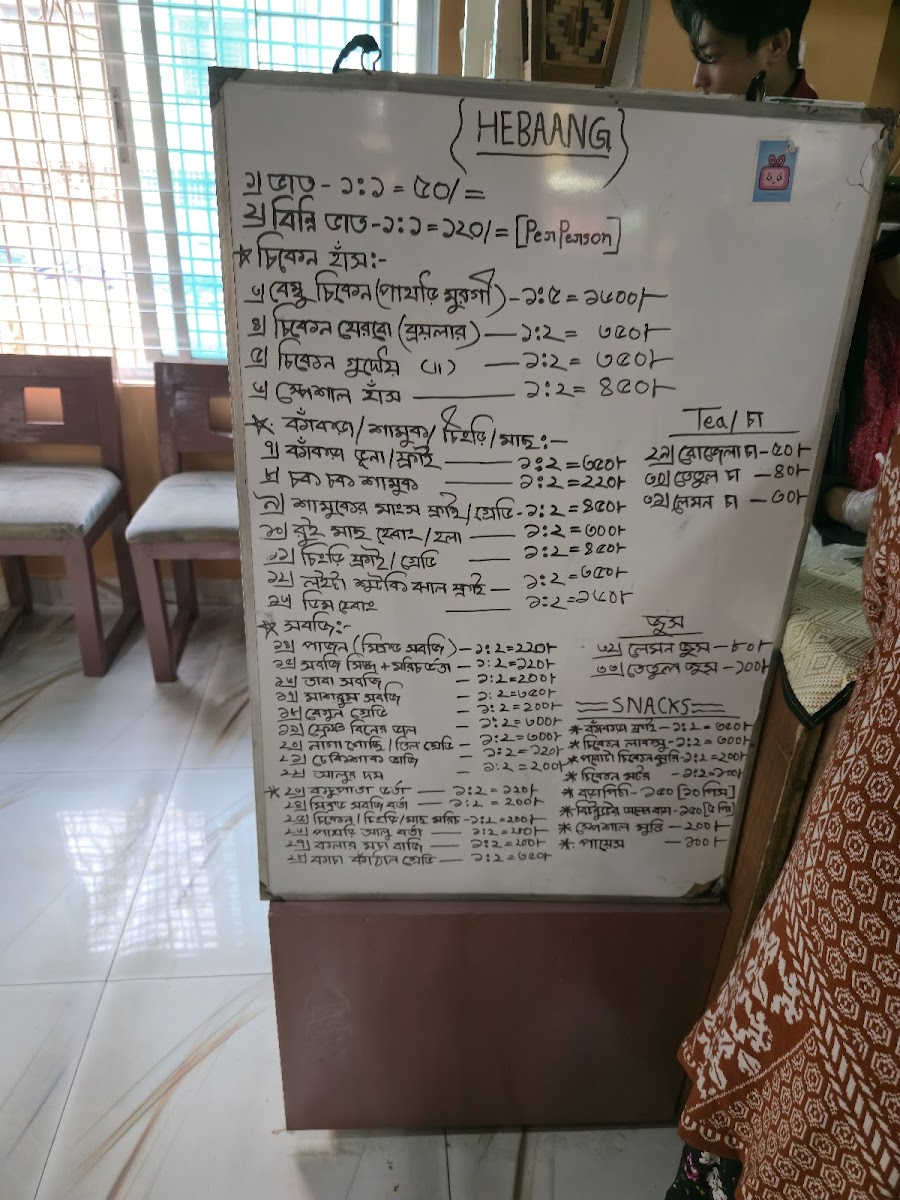 HEBAANG
১) ভাত - ১:১ = ৫০/=
২) বিন্নি ভাত - ১:১ = ১২০/= [Per Person]
* চিকেন হাঁস:-
৩) বেম্বু চিকেন (পাহাড়ি মুরগী) - ১:৫ = ১৬০০/-
৪) চিকেন হেবাং (ব্রয়লার) — ১:২ = ৩৫০/-
৫) চিকেন (") — ১:২ = ৩৫০/-
৬) স্পেশাল হাঁস — ১:২ = ৪৫০/-
* কাঁকড়া/শামুক/চিংড়ি/মাছ:-
৭) কাঁকড়া ভুনা/ফ্রাই — ১:২ = ৩৫০/-
৮) চক চক শামুক — ১:২ = ২২০/-
৯) শামুকের মাংস ফ্রাই/গ্রেভি - ১:২ = ৪৫০/-
১০) রুই মাছ হেবাং/হলা — ১:২ = ৩০০/-
১১) চিংড়ি ফ্রাই/গ্রেভি — ১:২ = ৪৫০/-
১২) লইট্যা শুটকি ঝাল ফ্রাই — ১:২ = ৩৫০/-
১৩) ডিম হেবাং — ১:২ = ১৫০/-
* সবজি:-
১৪) পাজন (মিক্সড সবজি) - ১:২ = ২২০/-
১৫) সবজি সিদ্ধ + মরিচ ভর্তা - ১:২ = ১২০/-
১৬) তাবা সবজি — ১:২ = ২০০/-
১৭) মাশরুম সবজি — ১:২ = ৩৫০/-
১৮) বেগুন গ্রেভি — ১:২ = ২০০/-
১৯) ফ্রেঞ্চ বিনের — ১:২ = ৩০০/-
২০) / গ্রেভি — ১:২ = ৩০০/-
২১) ঢেঁকিশাক ভাজি — ১:২ = ১২০/-
২২) আলুর দম — ১:২ = ২০০/-
* ২৩) কচুপাতা ভর্তা — ১:২ = ১২০/-
২৪) মিক্সড সবজি ভর্তা — ১:২ = ২০০/-
২৫) চিকেন/চিংড়ি/মাছ - ১:২ = ২০০/-
২৬) পাহাড়ি আলু ভর্তা — ১:২ = ২০০/-
২৭) কলার মচা ভাজি — ১:২ = ২০০/-
২৮) কাঁচা কাঁঠাল গ্রেভি — ১:২ = ৩৫০/-
Tea/চা
২৯) রোজেলা চা - ৫০/-
৩০) তেতুল চা — ৪০/-
৩১) লেমন চা — ৩০/-
জুস
৩২) লেমন জুস — ৮০/-
৩৩) তেতুল জুস — ১০০/-
SNACKS
* কাঁকড়া ফ্রাই - ১:২ = ৩৫০/-
* চিকেন লাকসু - ১:২ = ৩০০/-
* চিকেন - ১:২ = ২০০/-
* চিকেন - ১:২ = ২০০/-
* বড়াপিঠা - ১৫০ [১০ পিস]
* - ১৫০ [৫ পি]
* স্পেশাল মুন্ডি — ২০০/-
* পায়েস — ১০০/-